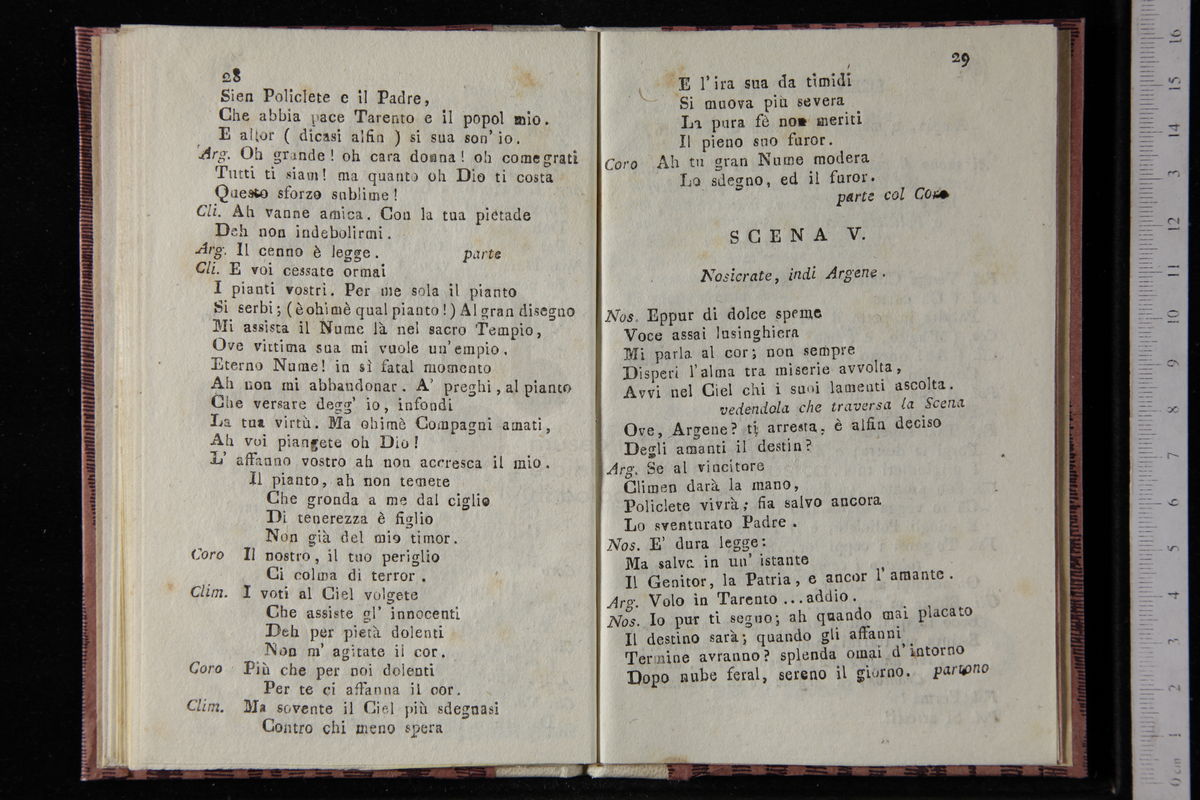 28
Sien Policlete e il Padre,
Che abbia pace Tarento e il popol mio.
E allor ( dicasi alfin ) si sua son' io.
Arg. Oh grande! oh cara donna! oh come grati
Tutti ti siam! ma quanto oh Dio ti costa
Questo sforzo sublime!
Cli. Ah vanne amica. Con la tua pietade
Deh non indebolirmi.
Arg. Il cenno è legge. parte
Cli. E voi cessate ormai
I pianti vostri. Per me sola il pianto
Si serbi; (è ohimè qual pianto!) Al gran disegno
Mi assista il Nume là nel sacro Tempio,
Ove vittima sua mi vuole un' empio.
Eterno Nume! in sì fatal momento
Ah non mi abbandonar. A' preghi, al pianto
Che versare degg' io, infondi
La tua virtù. Ma ohimè Compagni amati,
Ah voi piangete oh Dio!
L' affanno vostro ah non accresca il mio.
Il pianto, ah non temete
Che gronda a me dal ciglio
Di tenerezza è figlio
Non già del mio timor.
Coro Il nostro, il tuo periglio
Ci colma di terror.
Clim. I voti al Ciel volgete
Che assiste gl' innocenti
Deh per pietà dolenti
Non m' agitate il cor.
Coro Più che per noi dolenti
Per te ci affanna il cor.
Clim. Ma sovente il Ciel più sdegnasi
Contro chi meno spera
29
E l' ira sua da timidi
Si muova più severa
La pura fè non meriti
Il pieno suo furor.
Coro Ah tu gran Nume modera
Lo sdegno, ed il furor.
parte col Coro
SCENA V.
Nosicrate, indi Argene.
Nos. Eppur di dolce speme
Voce assai lusinghiera
Mi parla al cor; non sempre
Disperi l'alma tra miserie avvolta,
Avvi nel Ciel chi i suoi lamenti ascolta.
vedendola che traversa la Scena
Ove, Argene? ti arresta, è alfin deciso
Degli amanti il destin?
Arg. Se al vincitore
Climen darà la mano,
Policlete vivrà; fia salvo ancora
Lo sventurato Padre.
Nos. E' dura legge:
Ma salva in un' istante
Il Genitor, la Patria, e ancor l' amante.
Arg. Volo in Tarento ... addio.
Nos. Io pur ti seguo; ah quando mai placato
Il destino sarà; quando gli affanni
Termine avranno? splenda omai d' intorno
Dopo nube feral, sereno il giorno. partono
0 cm 1 2 3 4 5 6 7 8 9 10 11 12 13 14 15 16